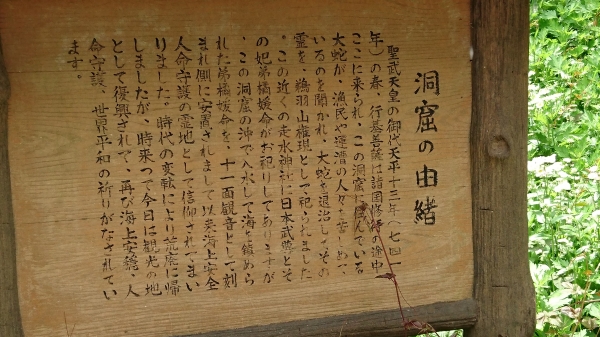 洞窟の由緒
聖武天皇の御代天平十三年(七四一
年)の春、行基菩薩は諸国修行の途中、
ここに来られ、この洞窟に住んでいる
大蛇が、漁民や運漕の人々を苦しめて
いるのを聞かれ、大蛇を退治し、その
霊を、鵜羽山権現として祀られました
。この近くの走水神社に日本武尊とそ
の妃弟橘媛命がお祀りしてありますが
、この洞窟の沖で入水して海を鎮めら
れた弟橘媛命を、十一面観音として刻
まれ側に安置されまして以来海上安全
人命守護の霊地として信仰されてまい
りました。時代の変転により荒廃に帰
しましたが、時来って今日に観光の地
として復興されて、再び海上安穏、人
命守護、世界平和の祈りがなされてい
ます。